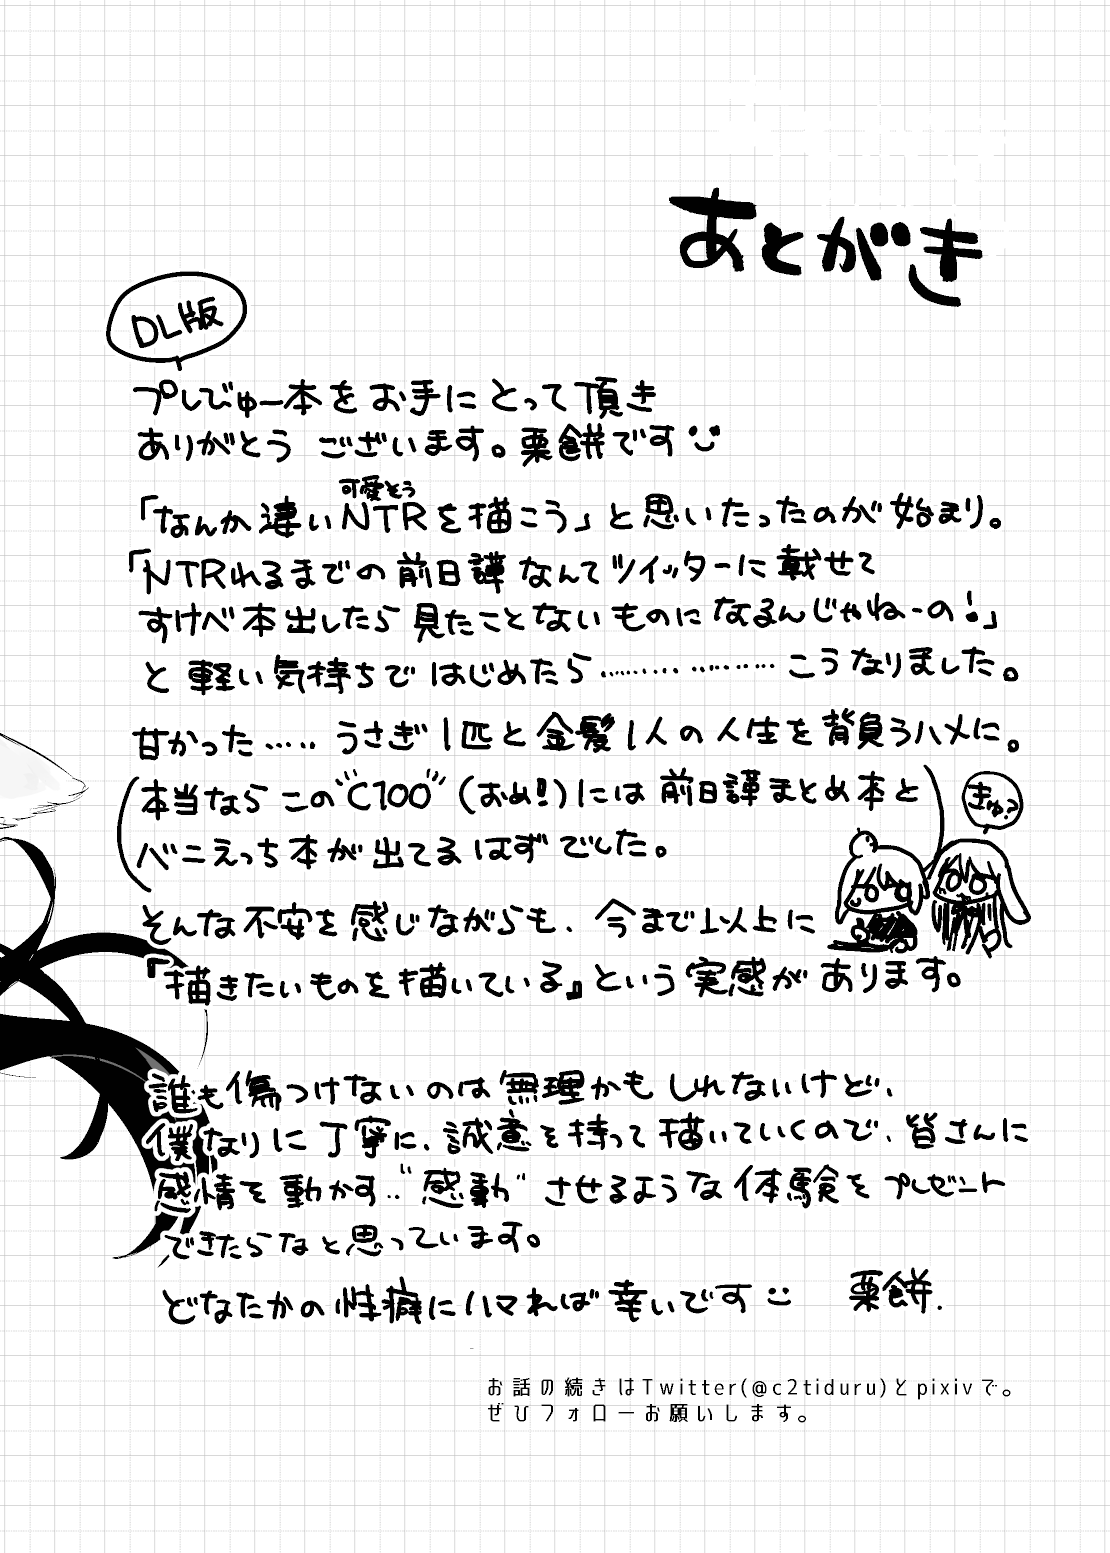 あとがき
DL版
プレびゅー本をお手にとって頂き
ありがとう ございます。栗餅です
可愛そう
「なんか違いNTRを描こう」と思いたったのが始まり。
「NTRれるまでの前日譚なんてツイッターに載せて
すけべ本出したら見たことないものになるんじゃねーの!」
と軽い気持ちではじめたら………………こうなりました。
甘かった……うさぎ1匹と金髪1人の人生を背負うハメに。
(本当ならこの"C100"(おめ!!)には前日譚まとめ本と
ベニえっち本が出てるはずでした。)
きゅ?
そんな不安を感じながらも、今まで以上に
『描きたいものを描いている』という実感があります。
誰も傷つけないのは無理かもしれないけど、
僕なりに丁寧に、誠意を持って描いていくので、皆さんに
感情を動かす‥"感動"させるような体験をプレゼント
できたらなと思っています。
どなたかの性癖にハマれば幸いです 栗餅.
お話の続きはTwitter(@c2tiduru)とpixivで。
ぜひフォローお願いします。